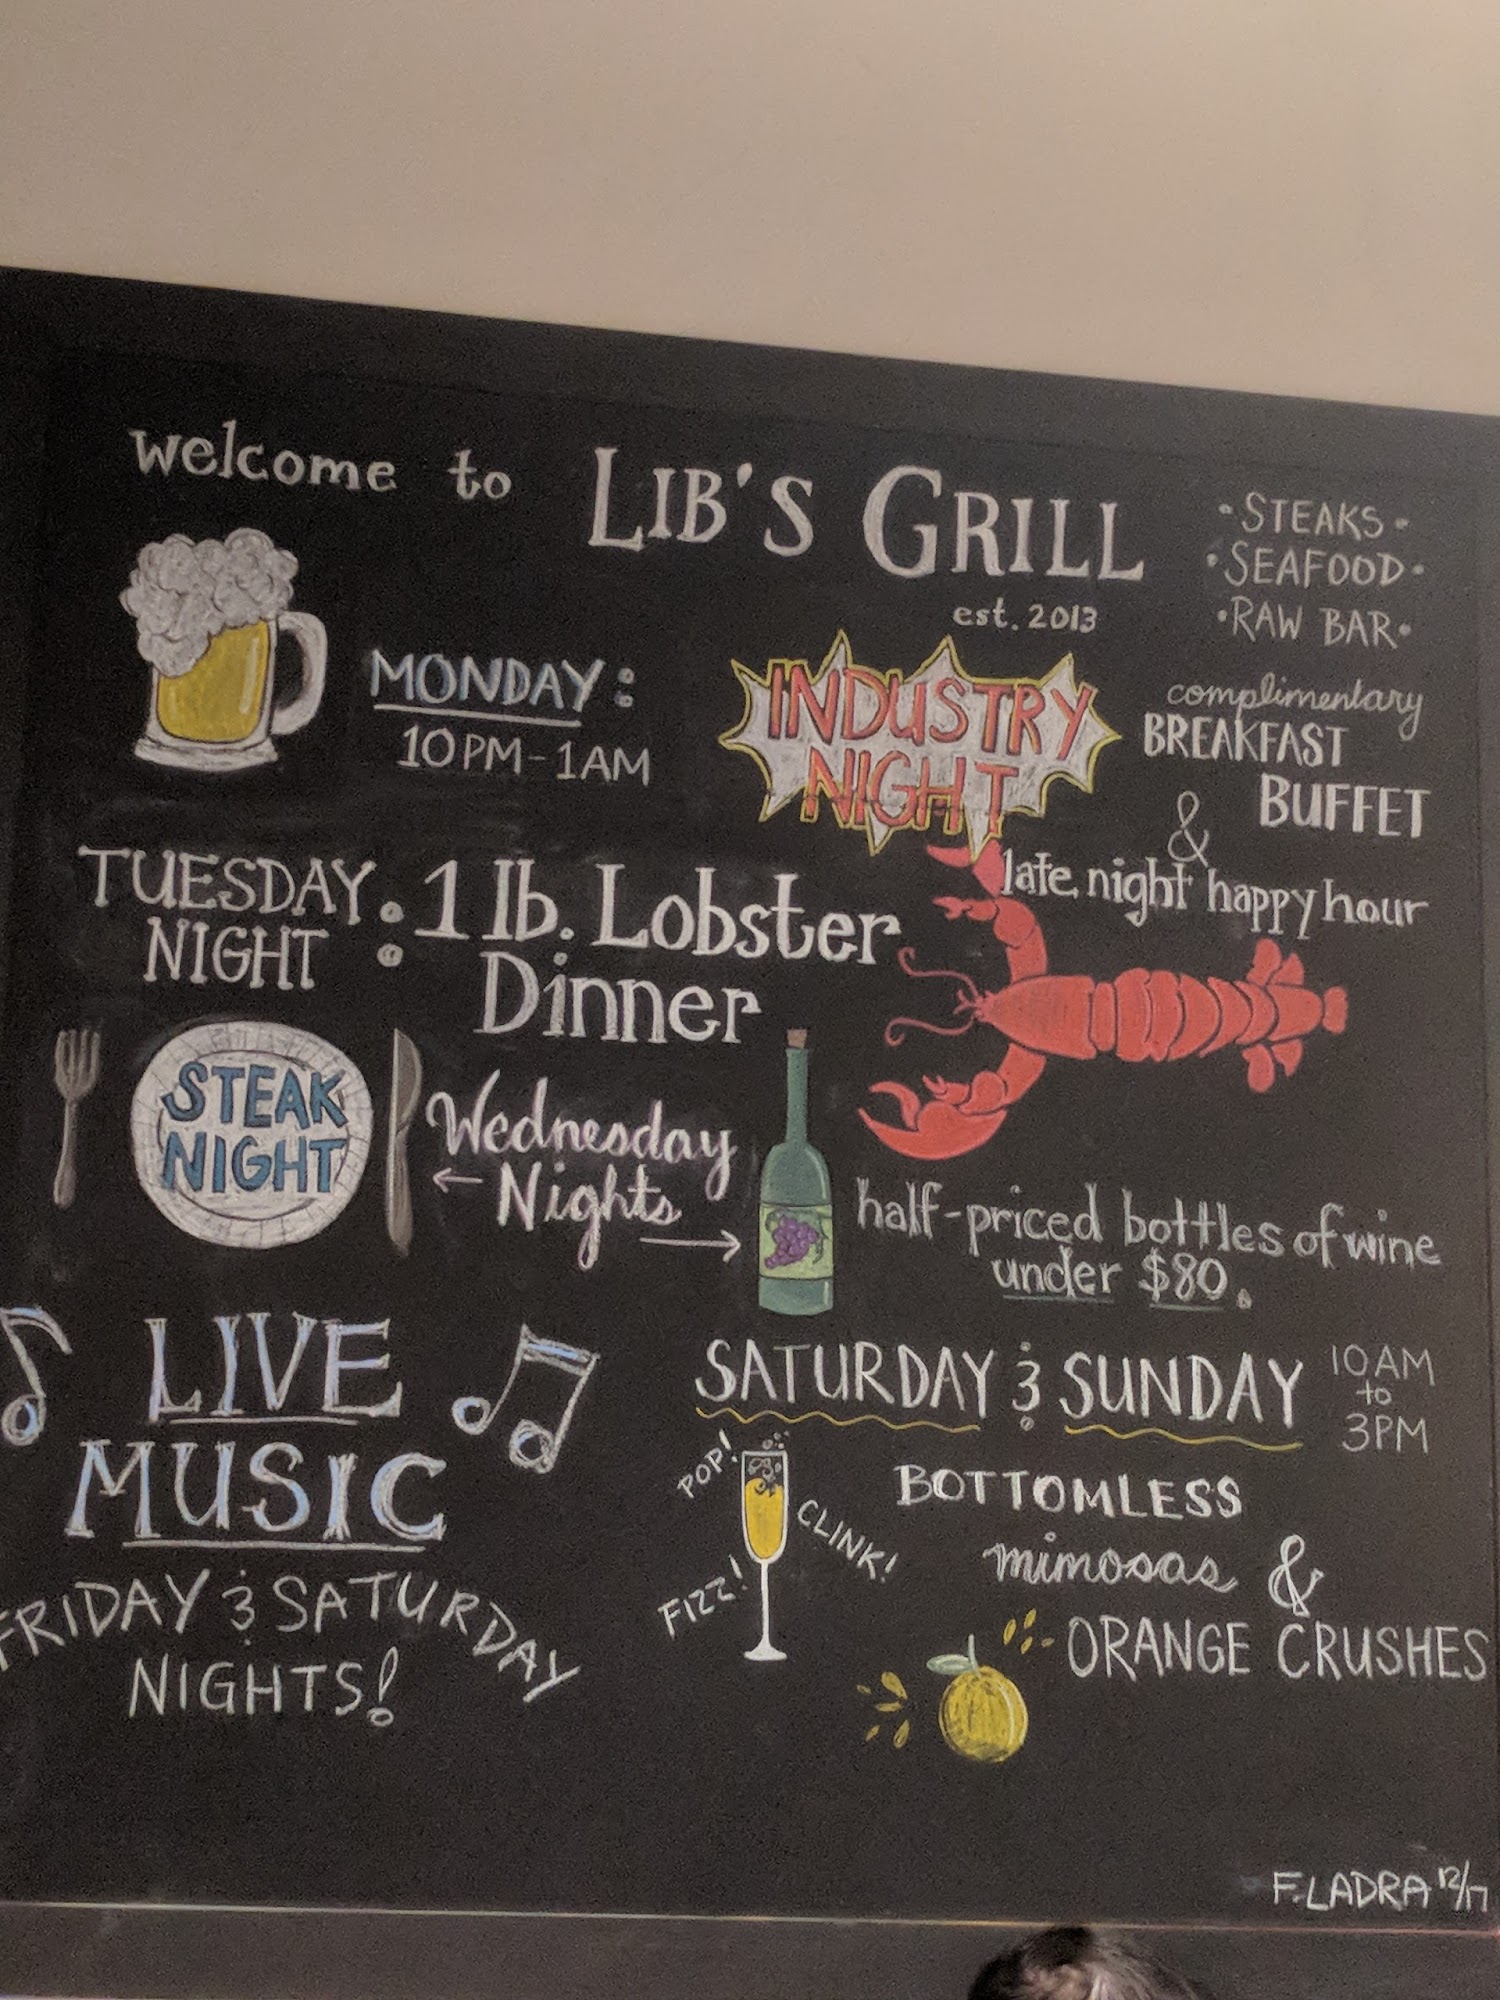 welcome to LIB'S GRILL
est. 2013
• STEAKS •
• SEAFOOD •
• RAW BAR •
MONDAY:
10PM-1AM
INDUSTRY
NIGHT
complimentary
BREAKFAST
BUFFET
&
late night happy hour
TUESDAY
NIGHT :
1 lb. Lobster
Dinner
STEAK
NIGHT
Wednesday
← Nights →
half-priced bottles of wine
under $80.
LIVE
MUSIC
FRIDAY & SATURDAY
NIGHTS!
SATURDAY & SUNDAY
10AM
to
3PM
POP!
CLINK!
FIZZ!
BOTTOMLESS
mimosas &
ORANGE CRUSHES
F.LADRA 12/17